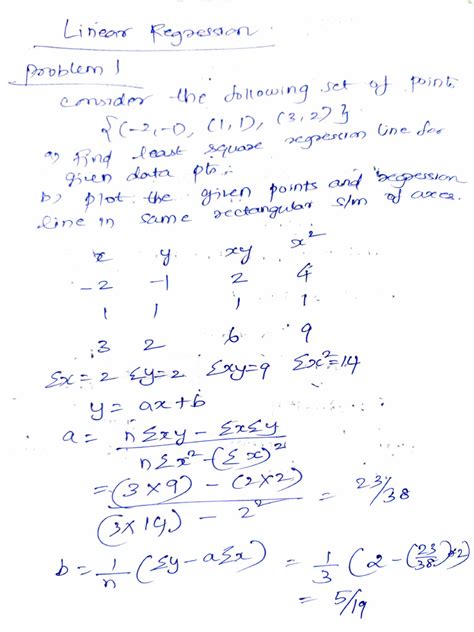 Linear Regression.
Problem 1
Consider the following set of points
{(-2,-1), (1,1), (3,2)}
a) Find least square regression line for
given data pts.
b) plot the given points and regression
line in same rectangular s/m of axes.
x y xy x²
-2 -1 2 4
1 1 1 1
3 2 6 9
Σx = 2 Σy=2 Σxy=9 Σx²=14
y = ax+b
a = nΣxy - ΣxΣy / nΣx² - (Σx)²
= (3×9) - (2×2) / (3×14) - 2² = 23/38
b = 1/n (Σy - aΣx) = 1/3 (2 - (23/38)*2)
= 5/19